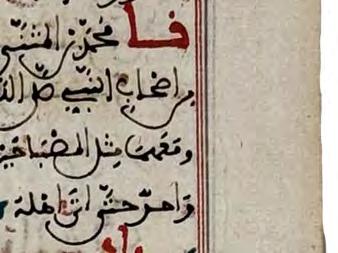 فا محمد بن المثنى
من اصحاب النبي صلى الله
ومعهما مثل المصباحين
واحد حتى اتى اهله